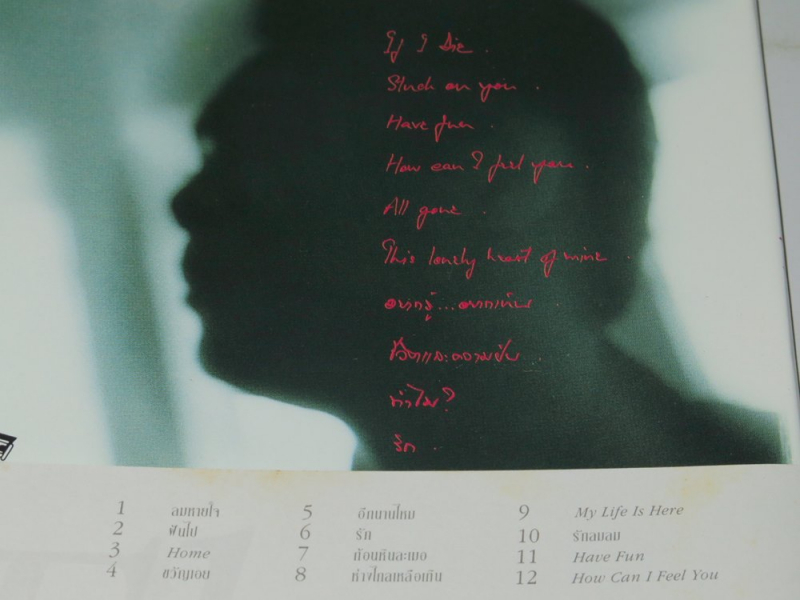 If I Die .
Stuck on you .
Have fun .
How can I feel you .
All gone .
This lonely heart of mine .
อยากรู้...อยากเห็น
ชีวิตและความฝัน
ทำไม?
รัก
1 ลมหายใจ
2 ฝันไป
3 Home
4 ขวัญเอย
5 อีกนานไหม
6 รัก
7 ก้อนหินละเมอ
8 ห่างไกลเหลือเกิน
9 My Life Is Here
10 รักลมลม
11 Have Fun
12 How Can I Feel You